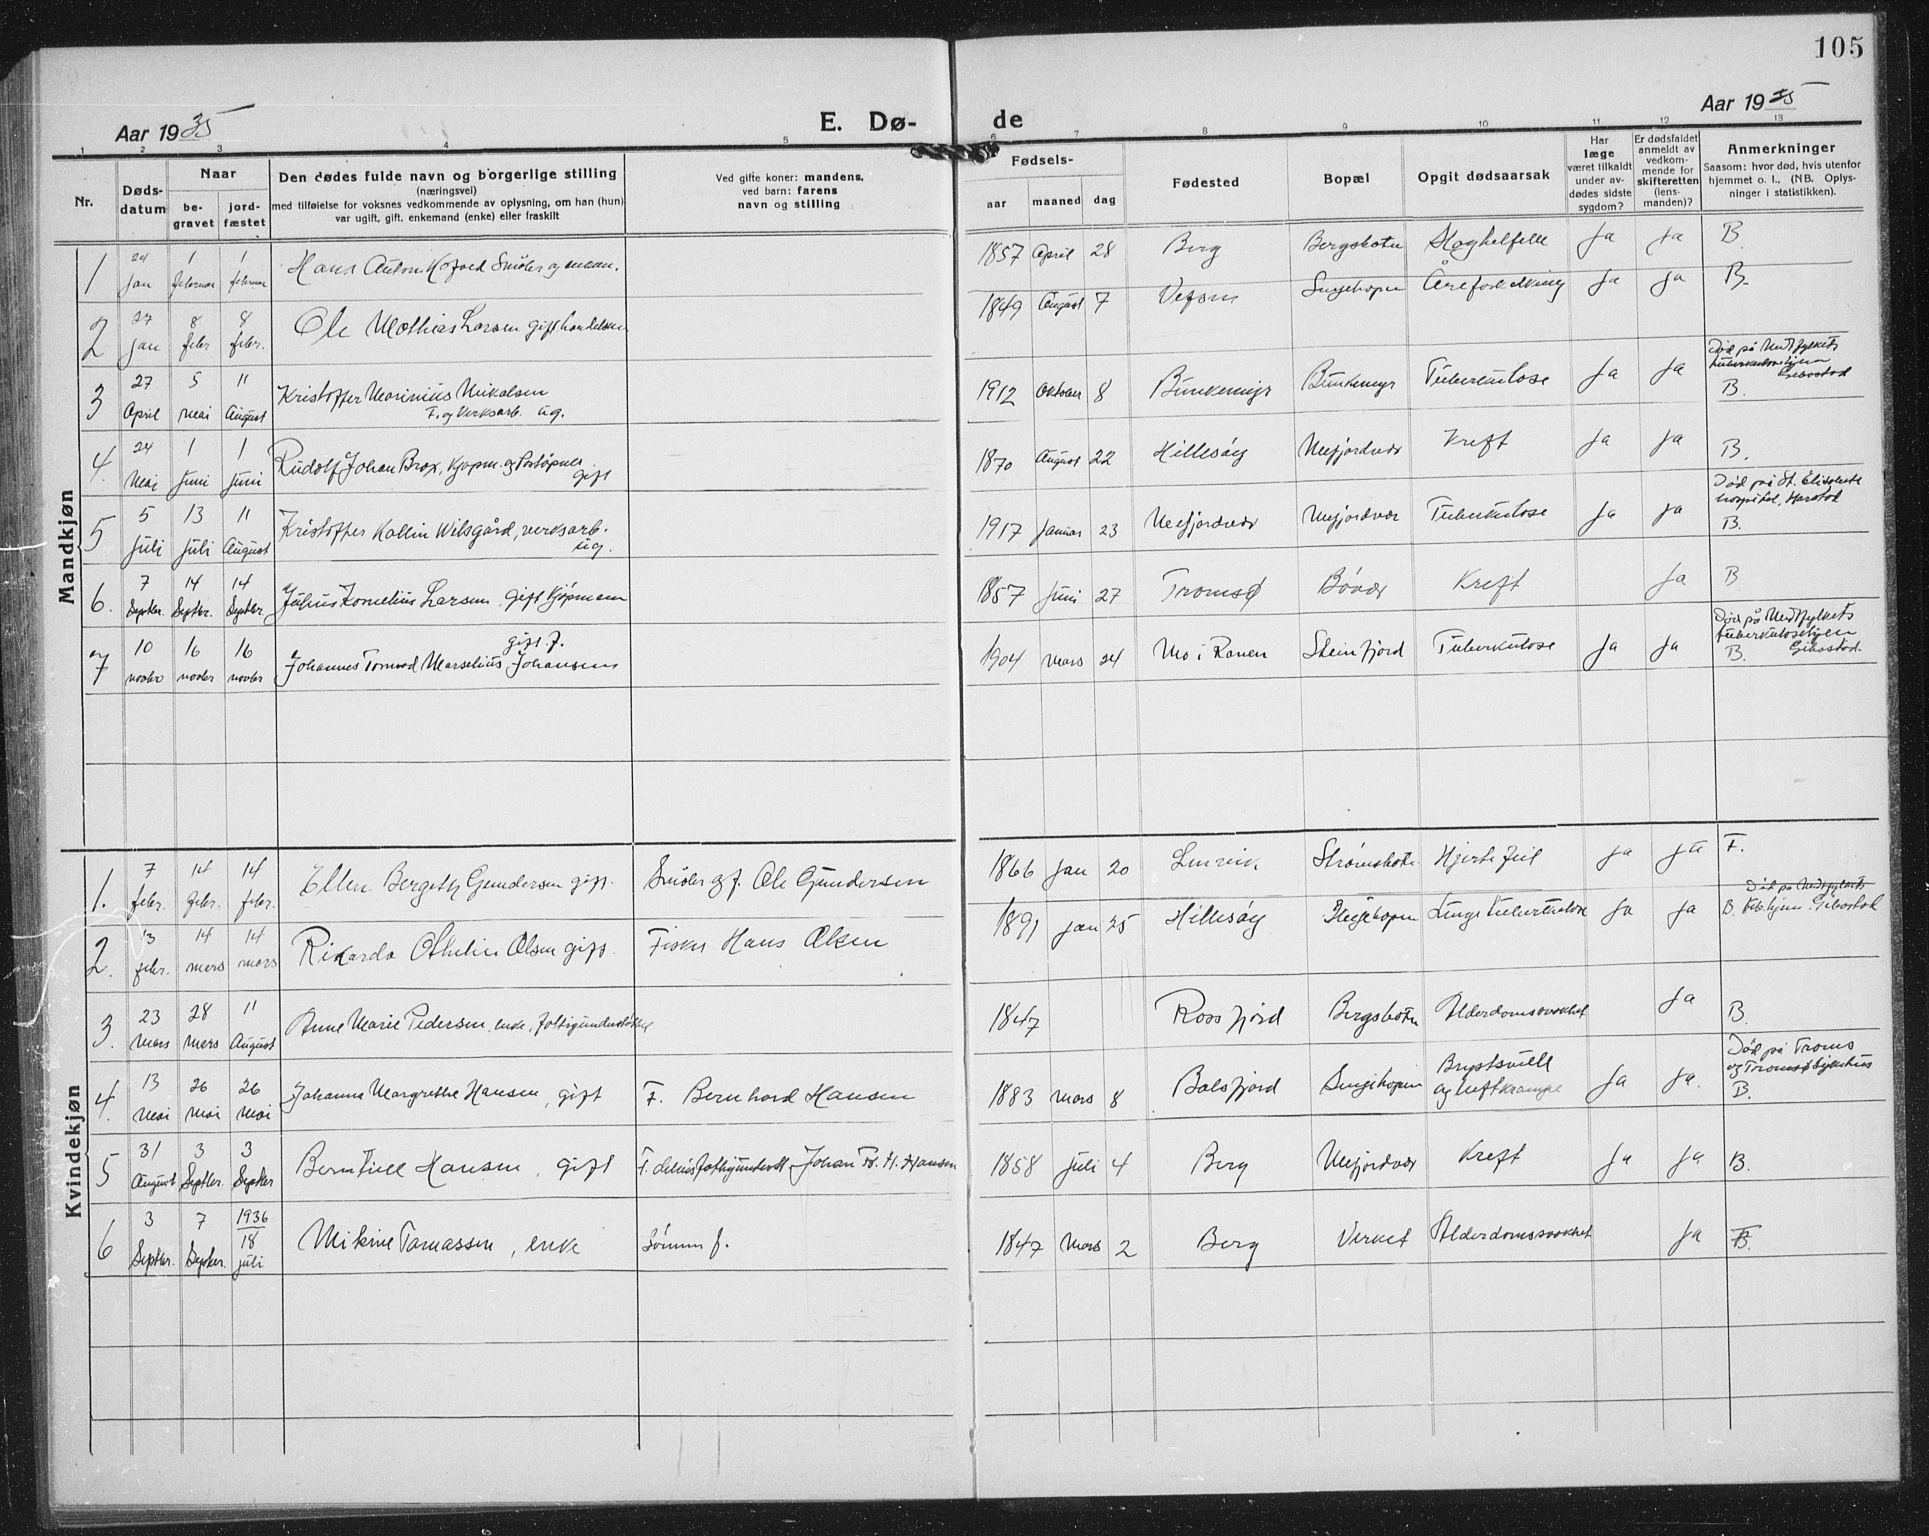 105
Aar 1935
E. Dø-
de
Aar 1935
1 2 3 4 5 6 7 8 9 10 11 12 13
Nr.
Døds-
datum
Naar
be-
gravet
jord-
fæstet
Den dødes fulde navn og borgerlige stilling
(næringsvei)
med tilføielse for voksnes vedkommende av oplysning, om han (hun)
var ugift, gift, enkemand (enke) eller fraskilt
Ved gifte koner: mandens,
ved barn: farens
navn og stilling
Fødsels-
aar maaned dag
Fødested
Bopæl
Opgit dødsaarsak
Har
læge
været tilkaldt
under av-
dødes sidste
sygdom?
Er dødsfaldet
anmeldt av
vedkom-
mende for
skifteretten
(lens-
manden)?
Anmerkninger
Saasom: hvor død, hvis utenfor
hjemmet o. l., (NB. Oplys-
ninger i statistikken).
Mandkjøn
1 24 Jan 1 februar 1 februar Hans Anton Småbr. og 1857 April 28 Berg Bergsbotn Ja Ja B.
2 27 Jan 8 febr. 8 febr. Ole Mathias Larsen gift 1849 August 7 Vefsn Åreforkalkning Ja Ja B.
3 27 April 5 Mai 11 August Kristoffer Marinius Nikolsen
F. og Verksarb. ug. 1912 Oktober 8 Bunkemyr Bunkemyr Tuberkulose Ja Ja Død på Midtfylkets
tuberkulosehjem
Gibostad
B.
4. 24 Mai 1 Juni 1 Juni Rudolf Johan Brox, Kjøpm. og
gift 1870 August 22 Hillesøy Mefjordvær Kreft Ja Ja B.
5 5 Juli 13 Juli 11 August Kristoffer Kallin Wilsgård, verksarb.
ug. 1917 Januar 23 Mefjordvær Mefjordvær Tuberkulose Ja Ja Død på St. Elisabeth
hospital, Harstad
B.
6. 7 Septbr. 14 Septbr. 14 Septbr. Julius Kornelius Larsen, gift Kjøpmann 1857 Juni 27 Tromsø Bøvær Kreft Ja B
7 10 novbr 16 novbr 16 novbr gift f.
Johannes Tormod Marselius Johansen 1904 Mars 24 Mo i Ranen Steinfjord Tuberkulose Ja Ja Død på Midtfylkets
tuberkulosehjem
B. Gibostad.
Kvindekjøn
1. 7 febr. 14 febr. 14 febr. Ellen Bergeth Gundersen gift. Småbr og f. Ole Gundersen 1866 Jan 20 Lenvik Strømsbotn Hjertefeil Ja Ja F.
2. 13 febr. 14 mars 14 mars Rikarda Othelie Olsen gift Fisker Hans Olsen 1891 Jan 25 Hillesøy Lungetuberkulose Ja Ja Død på Midtfylkets
B. Gibostad
3. 23 Mars 28 Mars 11 August Anne Marie Pedersen, enke, 1847 Rossfjord Bergsbotn Alderdomssvakhet Ja B.
4. 13 Mai 26 Mai 26 Mai Johanna Margrethe Hansen, gift F. Bernhard Hansen 1883 Mars 8 Balsfjord Brystsvull
og luftkrampe Ja Ja. Død på Troms
og Tromsø Sykehus
B.
5 31 August 3 Septbr. 3 Septbr Hansen, gift Johan Hansen 1858 Juli 4 Berg Mefjordvær Kreft Ja Ja B.
6 3 Septbr. 7 Septbr. 1936
18
juli Mikine Tomassen, enke 1847 Mars 2 Berg Verket Alderdomssvakhet Ja B.